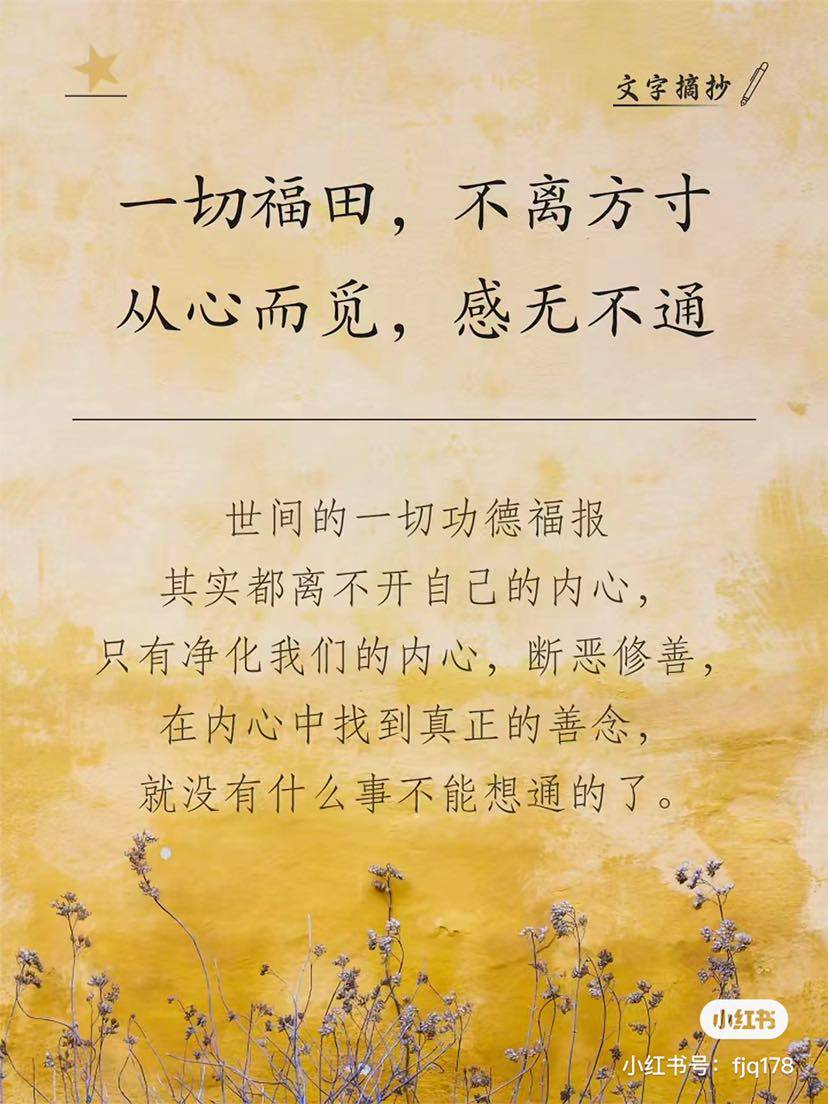 文字摘抄
一切福田，不离方寸
从心而觅，感无不通
世间的一切功德福报
其实都离不开自己的内心，
只有净化我们的内心，断恶修善，
在内心中找到真正的善念，
就没有什么事不能想通的了。
小红书
小红书号：fjq178